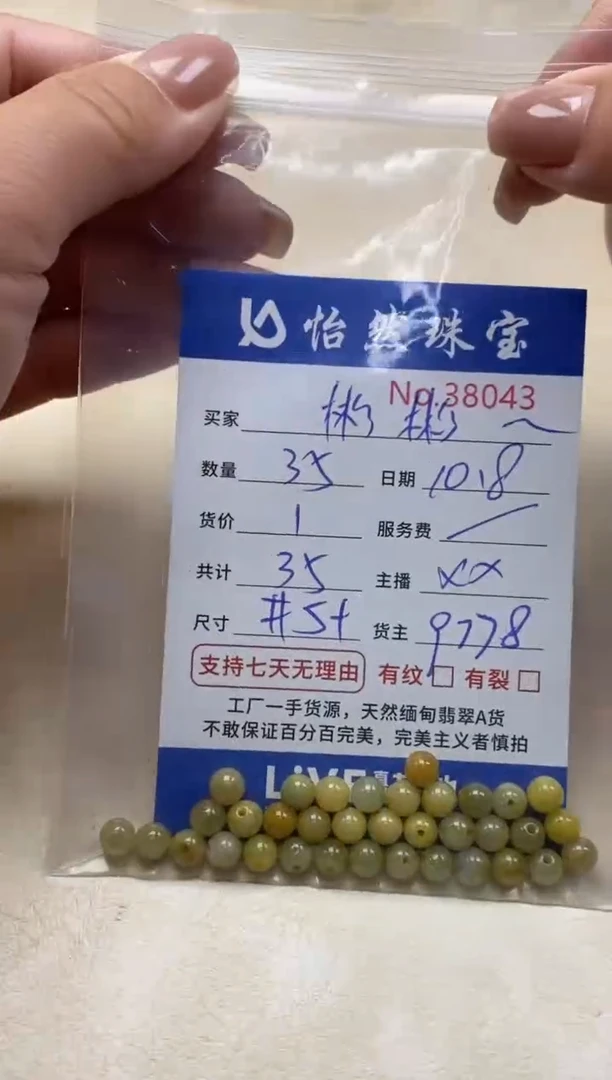 怡然珠宝
No.38043
买家 彬彬~
数量 35 日期 10.8
货价 1 服务费 /
共计 35 主播 xx
尺寸 #5+ 货主 9778
支持七天无理由 有纹 有裂
工厂一手货源，天然缅甸翡翠A货
不敢保证百分百完美，完美主义者慎拍
LiVE